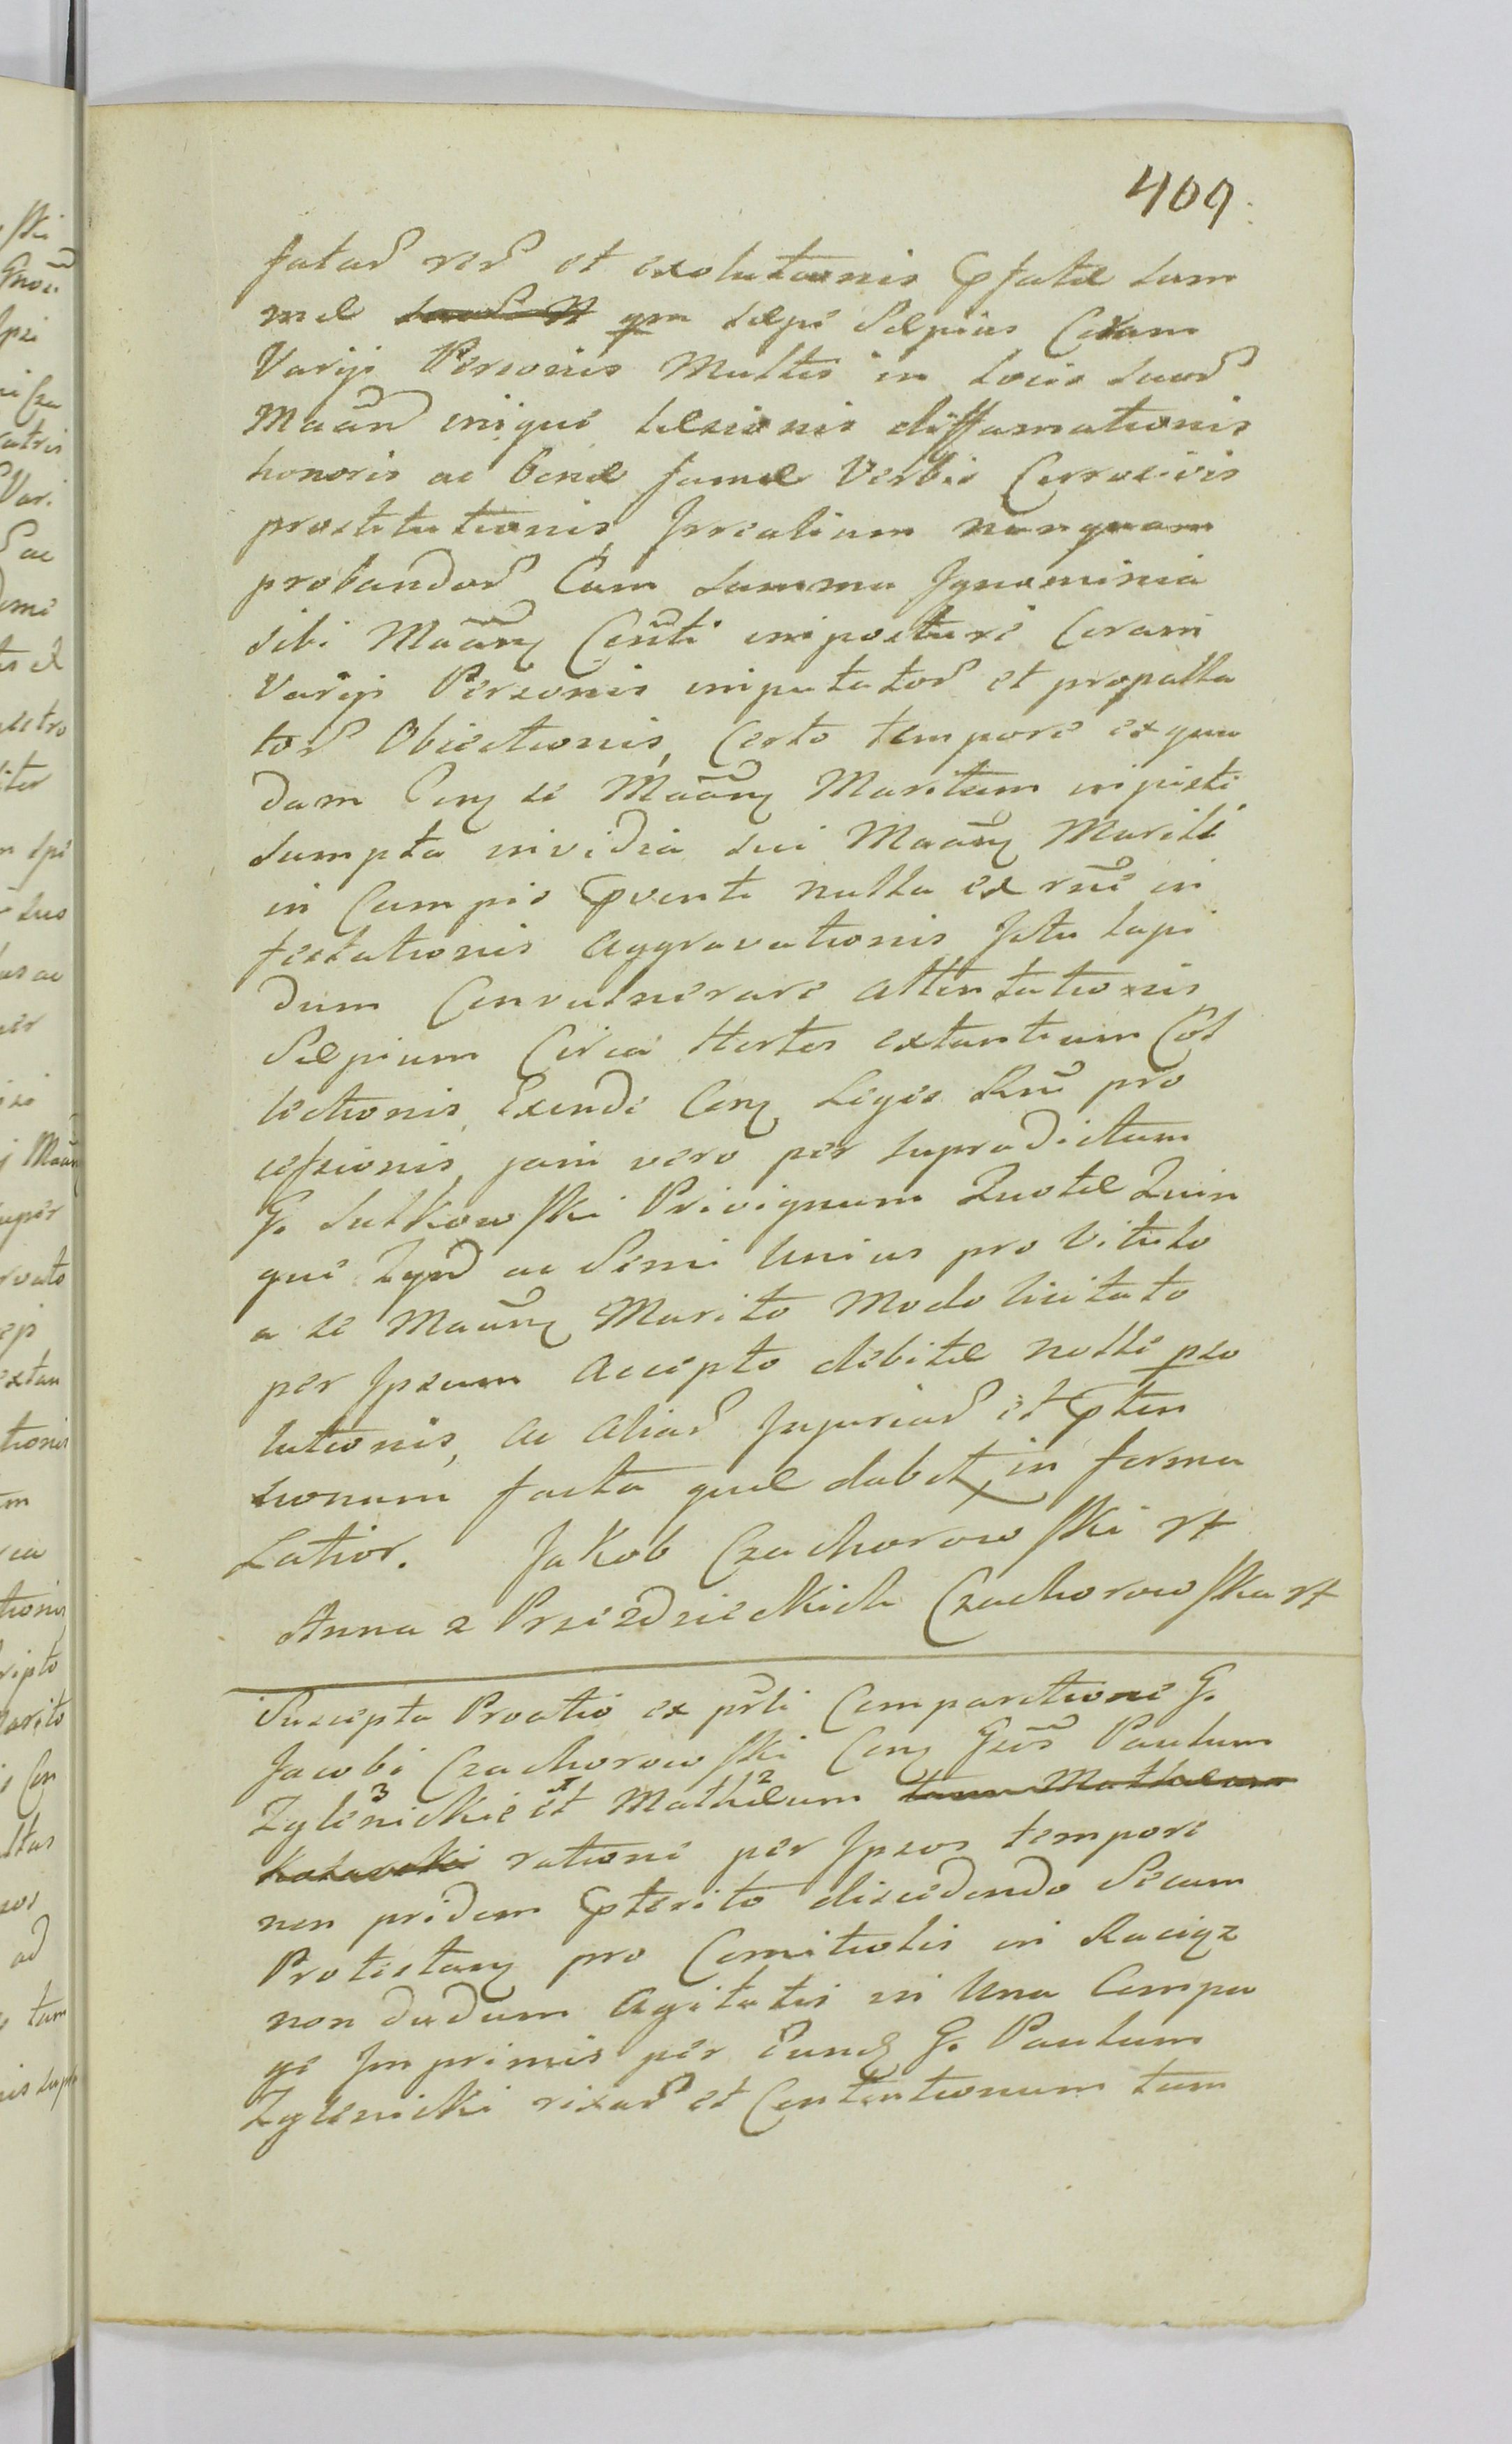 409.
fatar rer et exolutionis Pfatæ sum
mæ suar N qm sæpe Sæpius Coram
Varijs Personis Multis in locis suor
Maan iniquè læsionis diffamationis
honoris ac bonæ famæ Verbis Corrosivis
prostitutionis, Irrealium nunquam
probandor Cum summa Ignominia
sibi Maanq Centi imposture Coram
Varijs Personis imputator et propalla
tor Obiectionis, Certo tempore ex qua
dam Conq se Maanq Maritum injuste
sumpta invidia sui Maanq Mariti
in Campis Pventi nulla ex rne in
festationis Aggravationis Ictu lapi
dum Convulnerare attentationis
Sæpium Circa Hortos extantium Col
lectionis, Exinde Conq Leges Rni pro
cessionis, jam vero per supradictum
G. Sulkowski Privignum Quotæ Quin
que Tynf ac Semi Unius pro Vitulo
a se Maanq Marito Modo licitato
per Ipsum Accepto debitæ nolle pso
lutionis, Ac Aliar Injuriar et Pten
sionum facta quæ dabit, in forma
Latior. Jakob Czachorowski rt
Anna z Przezdzieckich Czachorowska rt
Suscepta Proatio ex prti Comparitione G.
Jacobi Czachorowski Conq Gsos Paulum
Zglenickie 3 et 1 Mathæum 2 tum Mathæum
ratione per Ipsos tempore
non pridem Pterito discedendo Secum
Protestanq pro Comitiolis in Raciąz
non dudum Agitatis in Una Compa
ge Imprimis per Eundq G. Paulum
Zglenicki rixar et Contentionum tum